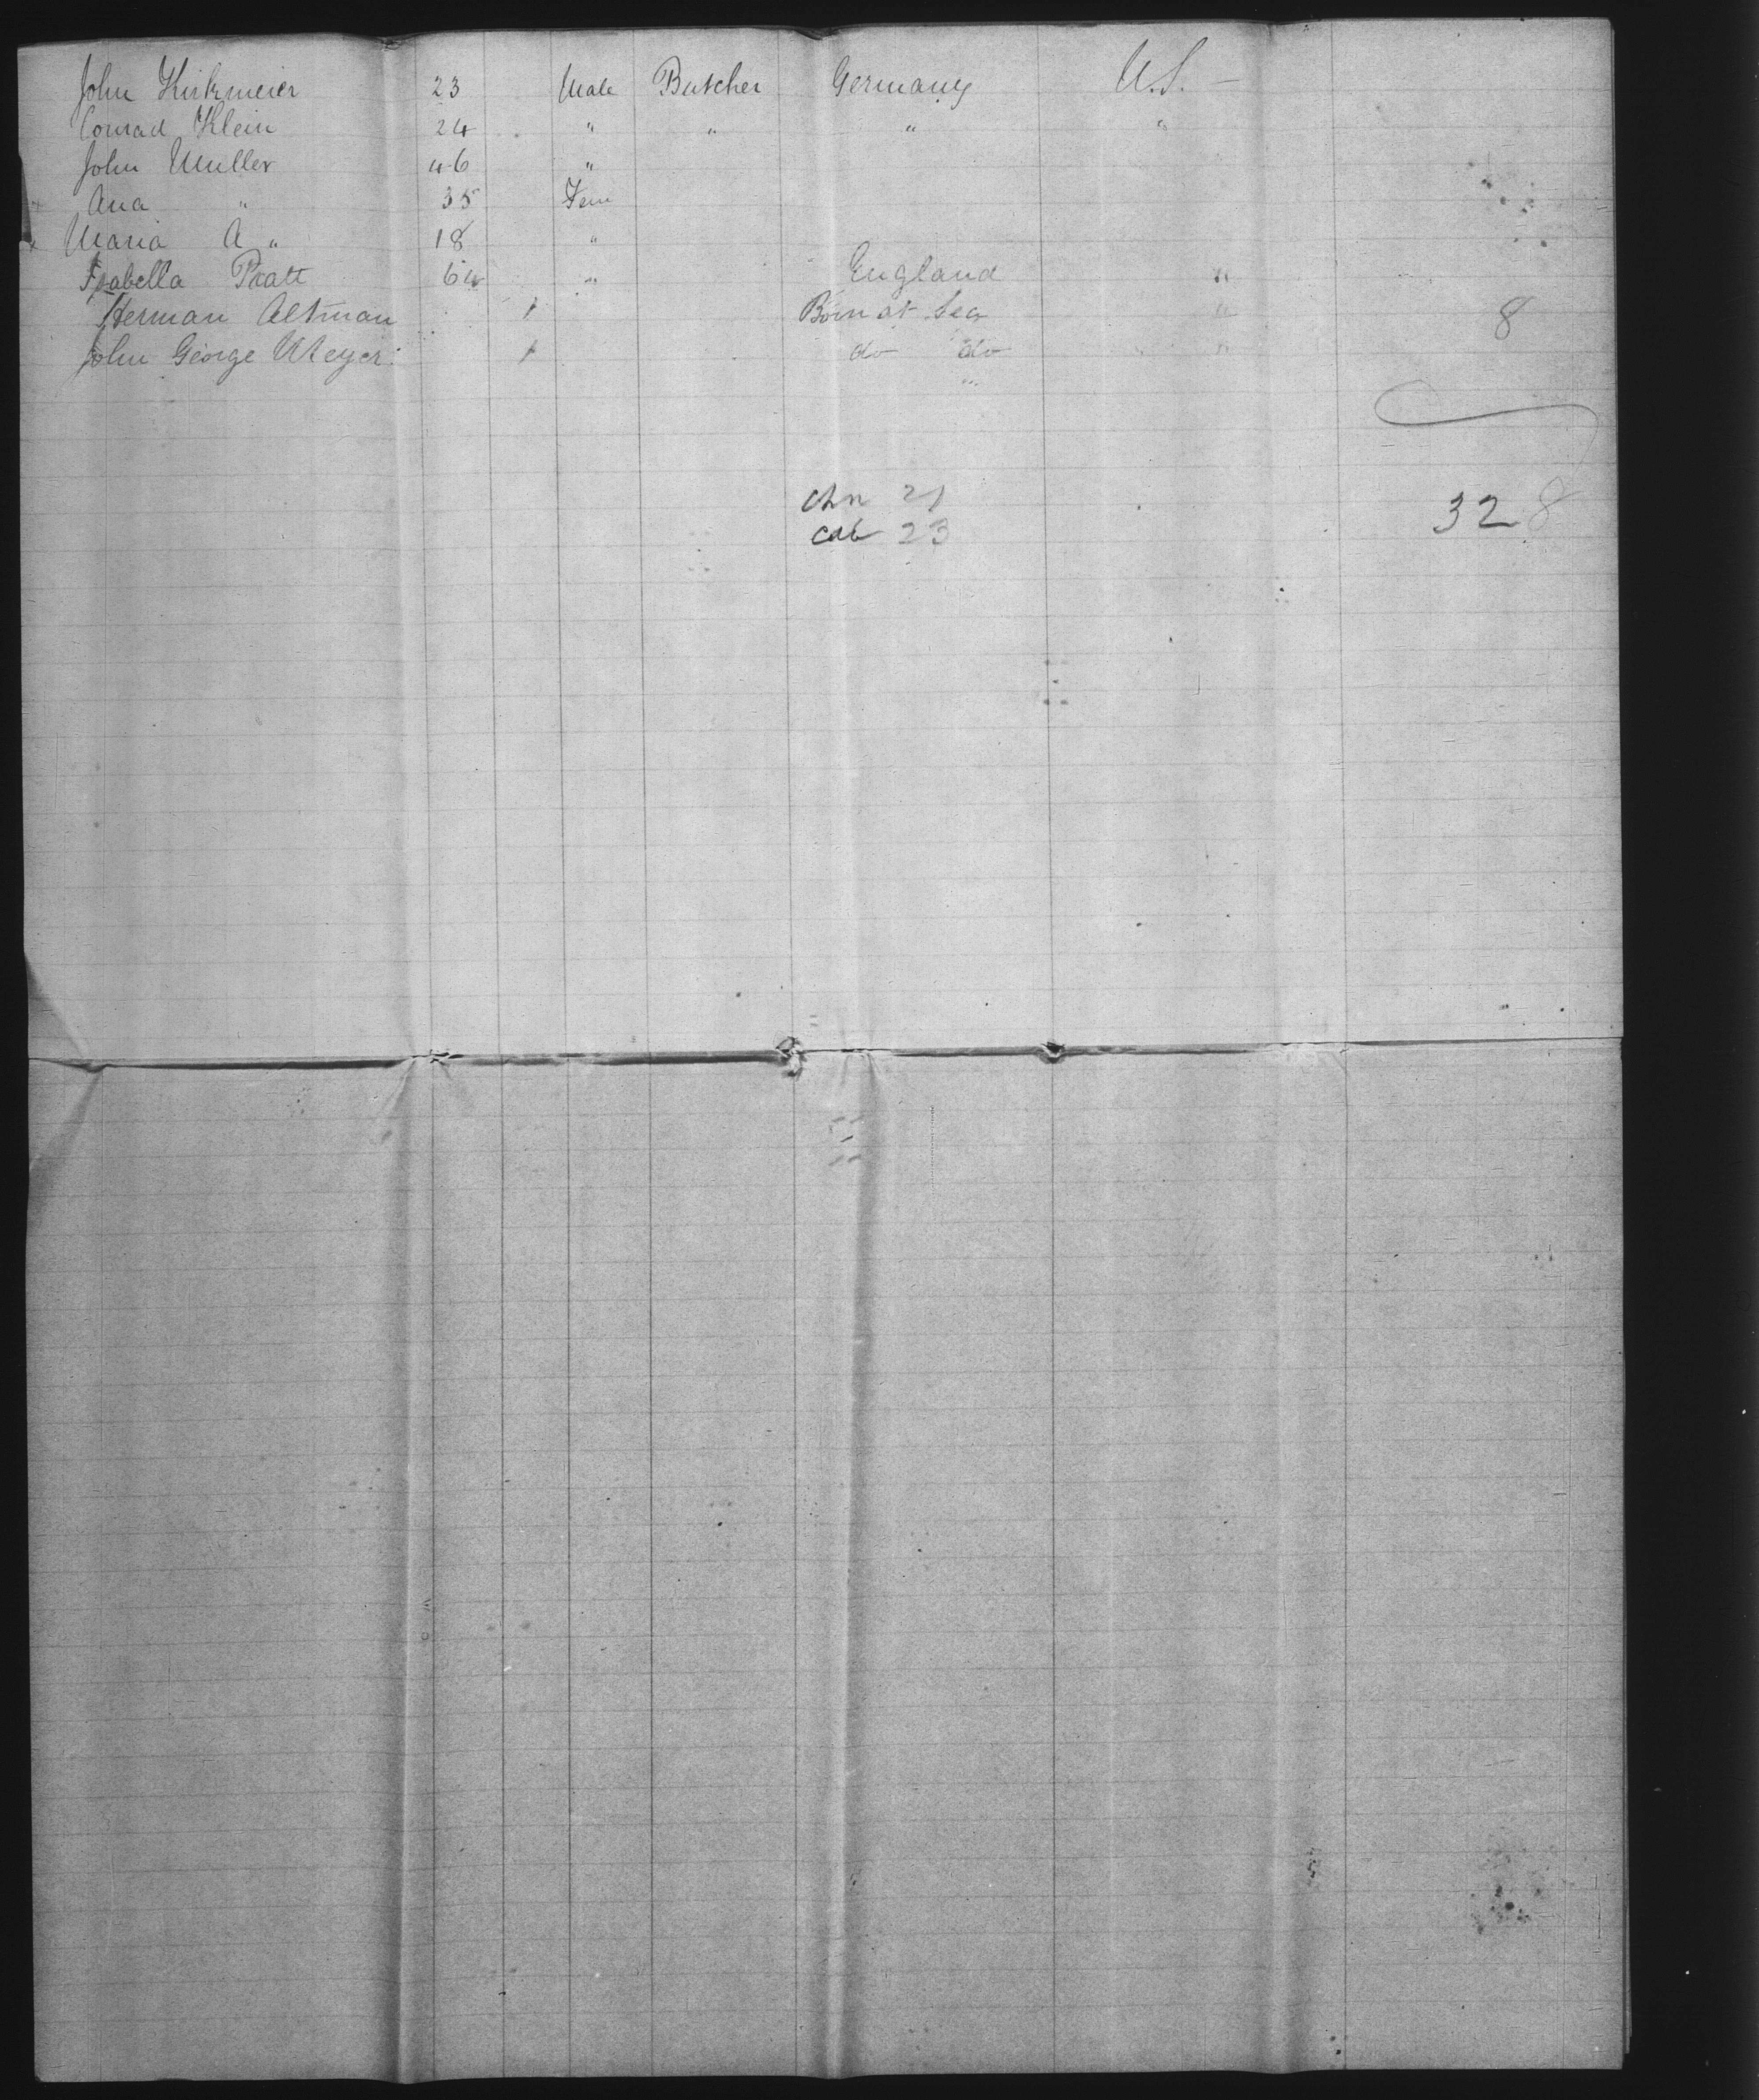 John Kirkmeier 23 Male Butcher Germany U.S. –
Conrad Klein 24 " " " "
John Muller 46 "
Ana " 35 Fem
Maria A " 18 "
Isabella Pratt 64 " England "
Herman Altman 1 Born at Sea " 8
John George Meyer 1 do do "
"
chn 21
328
cab 23